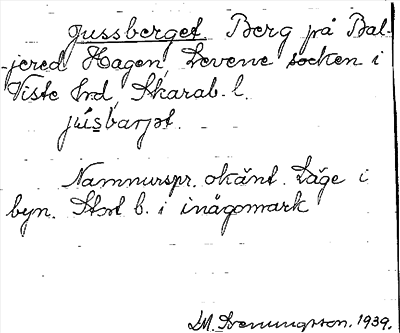 Jussberget Berg på Bal-
-jered Hagen, Levene socken i
Viste hrd, Skarab. l.
júsbarjət.
Namnurspr. okänt. Läge i
byn. Stort b. i inägomark
1939.